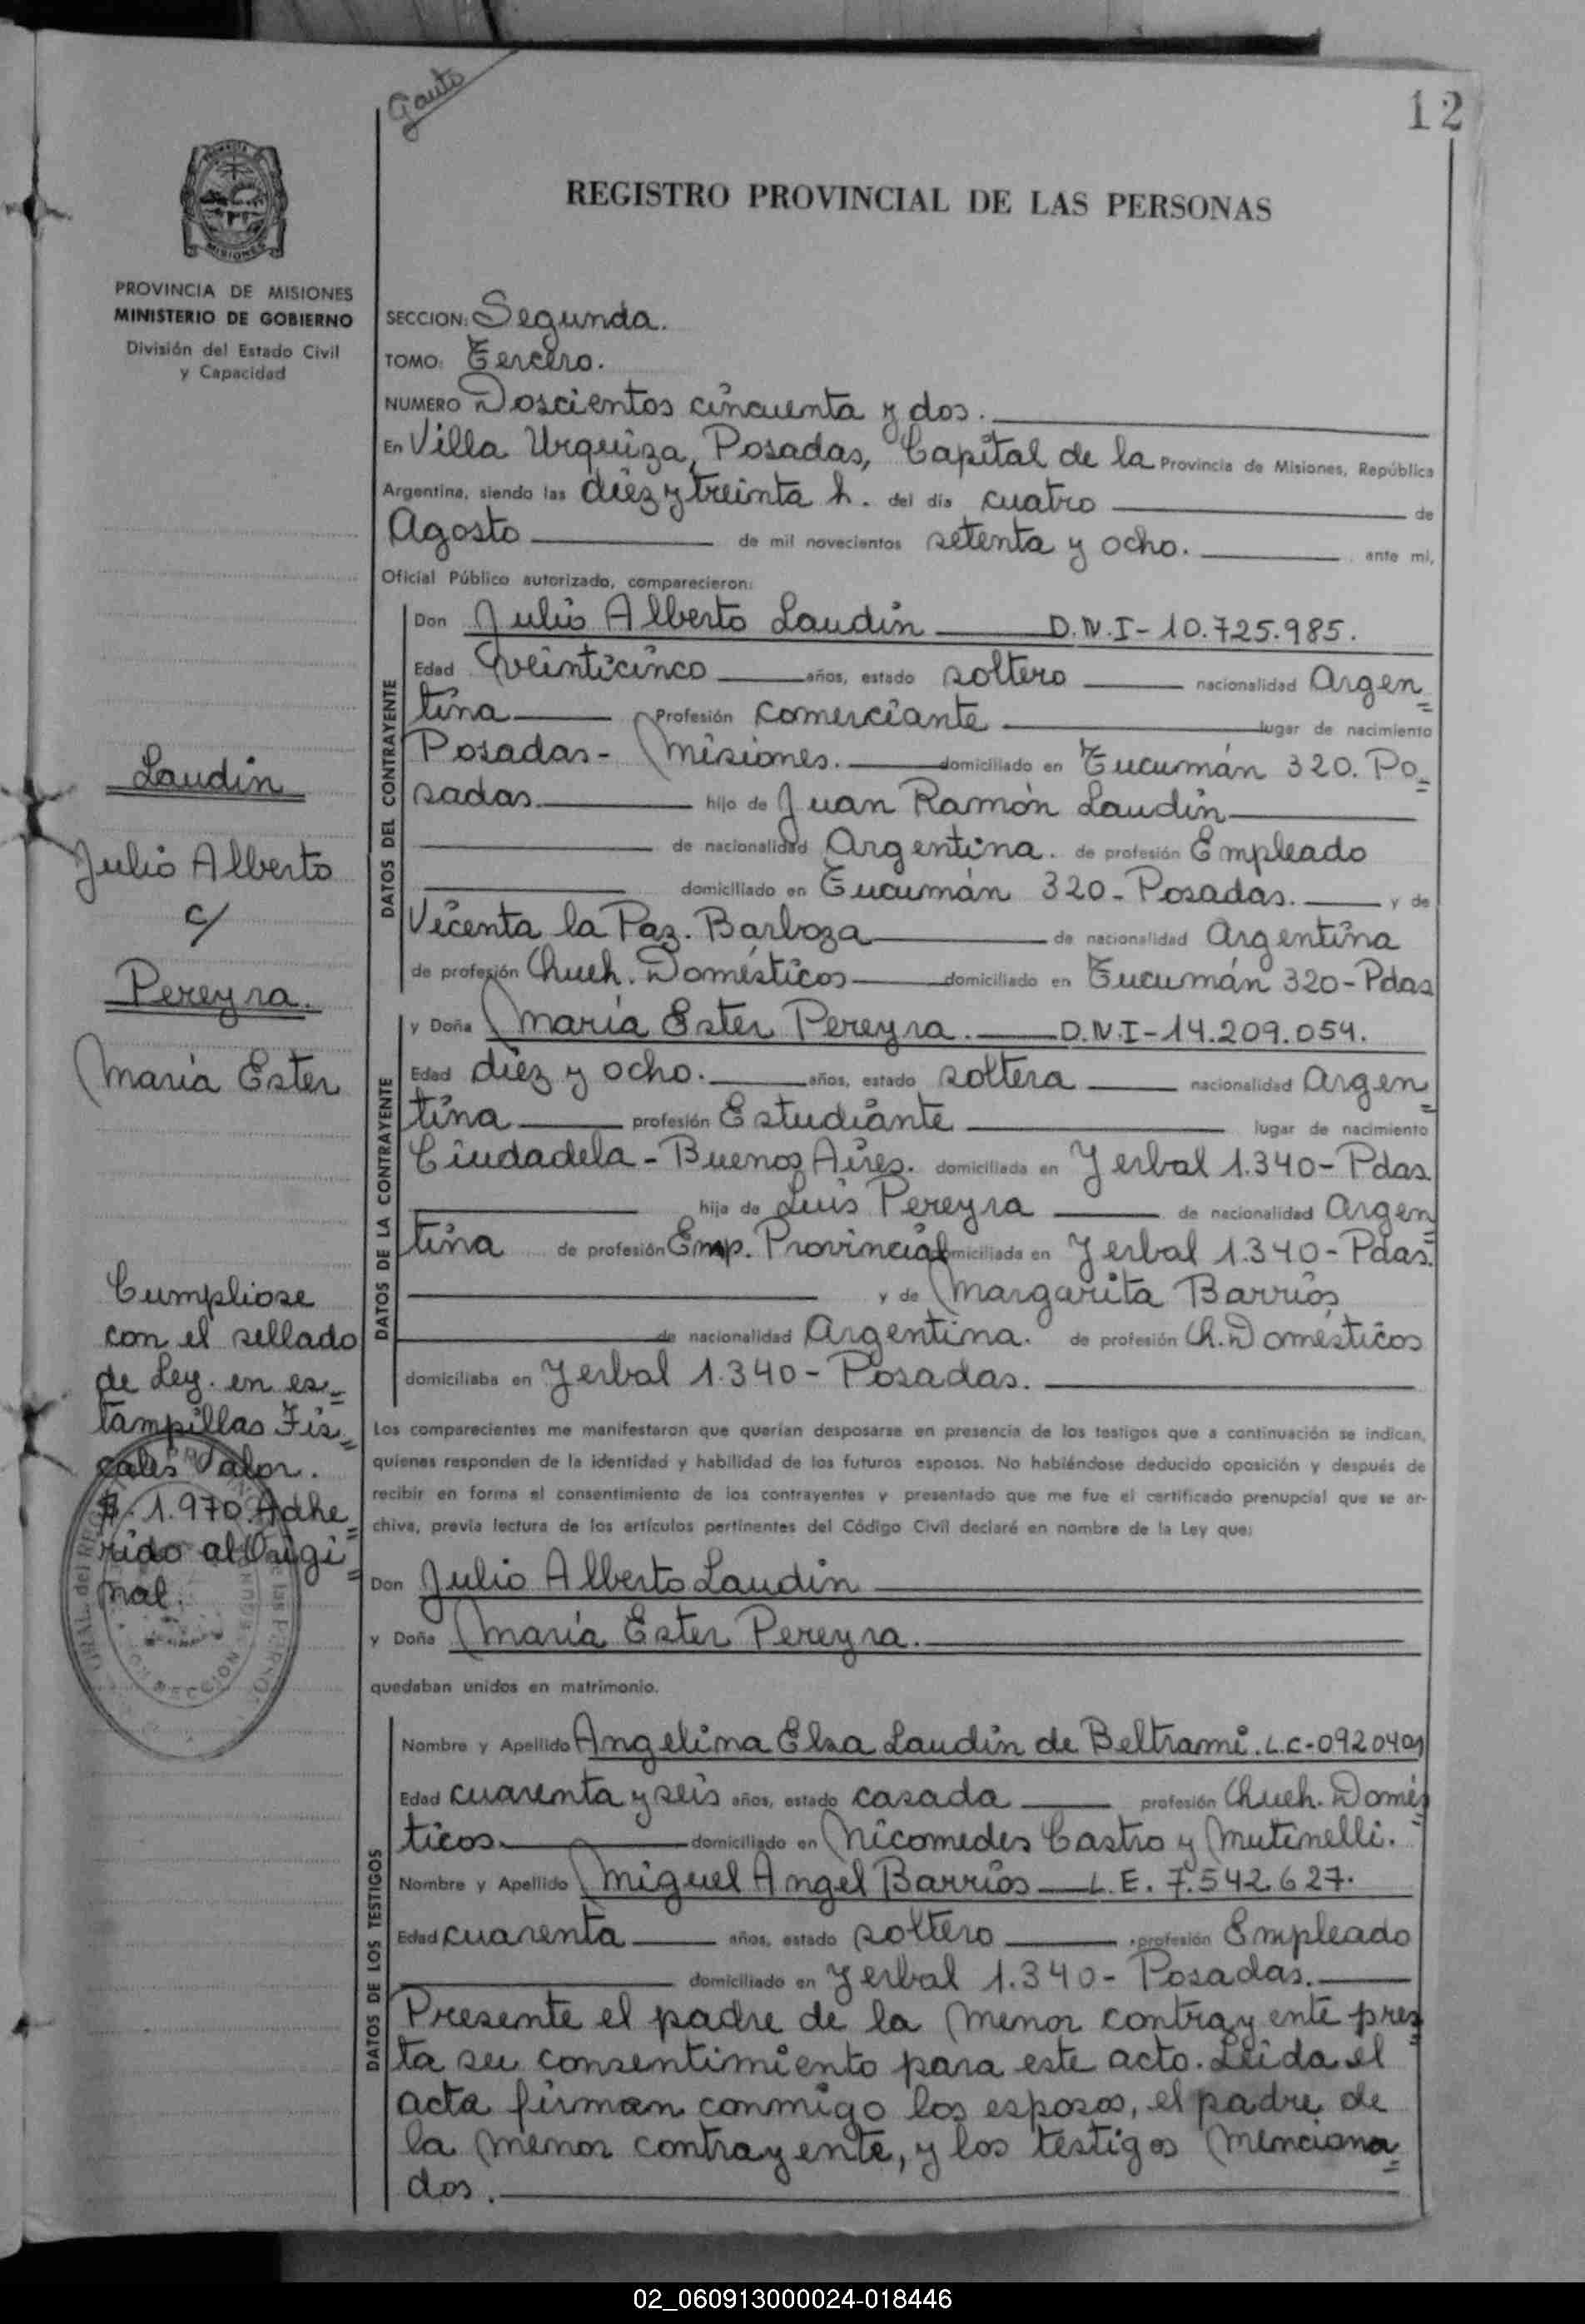 Gauto
12
REGISTRO PROVINCIAL DE LAS PERSONAS
MISIONES
PROVINCIA DE MISIONES
MINISTERIO DE GOBIERNO
División del Estado Civil
y Capacidad
SECCION: Segunda.
TOMO: Tercero.
NUMERO Doscientos cincuenta y dos.
En Villa Urquiza, Posadas, Capital de la Provincia de Misiones, República
Argentina, siendo las diez y treinta h. del día cuatro de
Agosto de mil novecientos setenta y ocho. ante mi,
Oficial Público autorizado, comparecieron:
DATOS DEL CONTRAYENTE
Don Julio Alberto Laudin D.N.I-10.725.985.
Edad veinticinco años, estado soltero nacionalidad Argen=
tina Profesión comerciante lugar de nacimiento
Posadas- Misiones. domiciliado en Tucumán 320. Po=
sadas. hijo de Juan Ramón Laudin
de nacionalidad Argentina. de profesión Empleado
domiciliado en Tucumán 320-Posadas. y de
Vicenta la Paz. Barboza de nacionalidad Argentina
de profesión Queh. Domésticos domiciliado en Tucumán 320-Pdas
DATOS DE LA CONTRAYENTE
y Doña María Ester Pereyra. D.N.I-14.209.054.
Edad diez y ocho. años, estado soltera nacionalidad Argen=
tina profesión Estudiante lugar de nacimiento
Ciudadela-Buenos Aires. domiciliada en Yerbal 1.340-Pdas.
hija de Luis Pereyra de nacionalidad Argen=
tina de profesión Emp. Provincial domiciliada en Yerbal 1.340-Pdas.
y de Margarita Barrios
de nacionalidad Argentina. de profesión Q. Domésticos
domiciliaba en Yerbal 1.340-Posadas.
Los comparecientes me manifestaron que querían desposarse en presencia de los testigos que a continuación se indican,
quienes responden de la identidad y habilidad de los futuros esposos. No habiéndose deducido oposición y después de
recibir en forma el consentimiento de los contrayentes y presentado que me fue el certificado prenupcial que se ar-
chiva, previa lectura de los artículos pertinentes del Código Civil declaré en nombre de la Ley que:
Don Julio Alberto Laudin
y Doña María Ester Pereyra.
quedaban unidos en matrimonio.
DATOS DE LOS TESTIGOS
Nombre y Apellido Angelina Elsa Laudin de Beltrami. L.C-0920401
Edad cuarenta y seis años, estado casada profesión Queh. Domés=
ticos. domiciliado en Nicomedes Castro y Mutinelli.
Nombre y Apellido Miguel Angel Barrios L.E. 7.542.627.
Edad cuarenta años, estado soltero profesión Empleado
domiciliado en Yerbal 1.340-Posadas.
Presente el padre de la menor contrayente pres=
ta su consentimiento para este acto. Leida el
acta firman conmigo los esposos, el padre de
la menor contrayente, y los testigos menciona=
dos.
Laudin
Julio Alberto
c/
Pereyra.
María Ester
Cumpliose
con el sellado
de Ley. en es=
tampillas Fis=
cales Valor.
$. 1.970. Adhe=
rido al Origi=
nal.
02_060913000024-018446